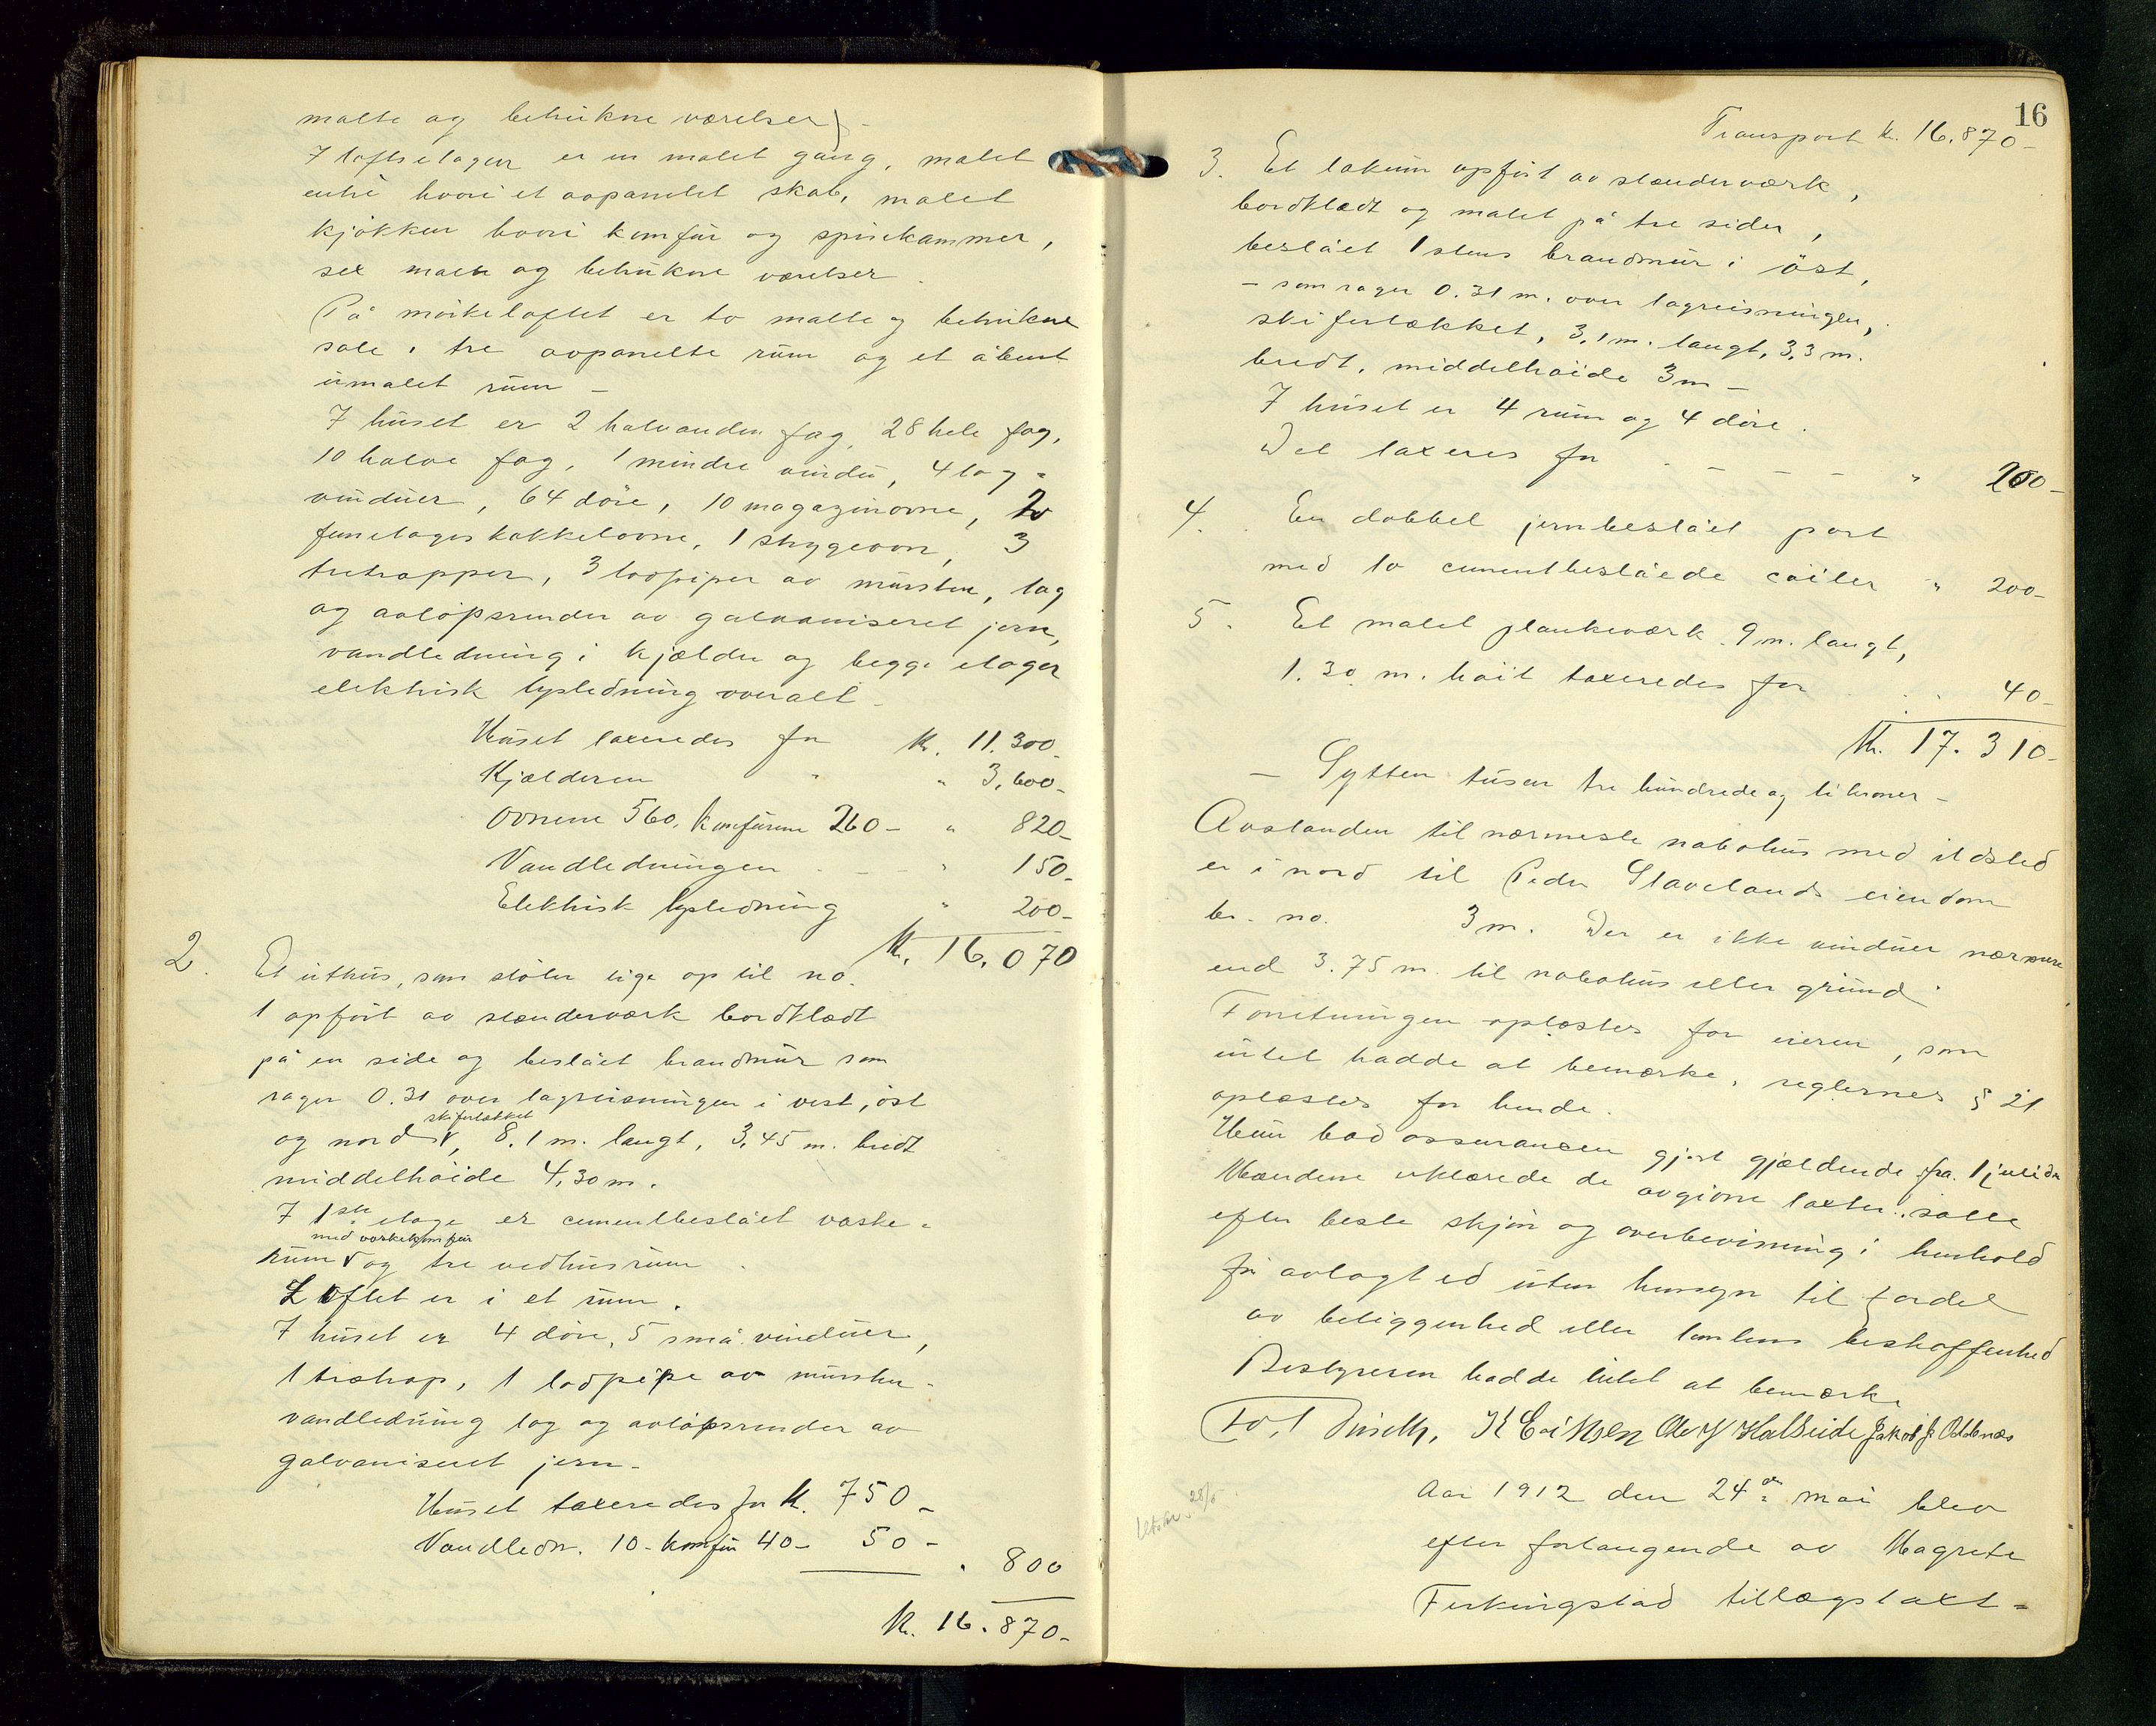 malte og betrukne værelser).
I loftsetagen er en malet gang, malet
entré hvori et avpanelet skab, malet
kjøkken hvori komfur og spisekammer,
sex malte og betrukne værelser.
På mørkeloftet er to malte og betrukne
sale, tre avpanelte rum og et åbent
umalet rum –
I huset er 2 halvanden fag, 28 hele fag,
10 halve fag, 1 mindre vindu, 4 tag-
vinduer, 64 døre, 10 magasinovne, to
femetages kakkelovne, 1 strygeovn, 3
tretrapper, 3 lodpiper av mursten, tag
og avløpsrender av galvaniseret jern,
vandledning i kjælder og begge etager
elektrisk lysledning overalt –
Huset taxeredes for kr. 11.300-
Kjælderen " " 3,600-
Ovnene 560, komfurene 260- " 820-
Vandledningen - - - " 150-
Elektrisk lysledning " 200-
Kr. 16.070
2. Et uthus, som støter lige op til no.
1 opført av stenderværk bordklædt
på en side og beslået brandmur som
rager 0.31 over tagreisningen i vest, øst
skifertækket
og nord, 8,1 m. langt, 3,45 m. bredt
middelhøide 4,30 m.
I 1ste etage er cementbeslået vaske-
med vaskekomfur
rum og tre vedhusrum.
Loftet er i et rum.
I huset er 4 døre, 5 små vinduer,
1 tretrap, 1 lodpipe av mursten
vandledning tag og avløpsrender av
galvaniseret jern -
Huset taxeredes for kr. 750 -
Vandledn. 10 - komfur 40 - 50 -
" 800
Kr. 16.870-
16
Transport kr. 16.870-
3. Et lokum opført av stenderværk,
bordklædt og malet på tre sider,
beslået 1 stens brandmur i øst,
- som rager 0.31 m. over tagreisningen,
skifertækket, 3,1 m. langt, 3,3 m.
bredt, middelhøide 3 m –
I huset er 4 rum og 4 døre.
Det taxeres for - - - - " 200-
4. En dobbel jernbeslået port
med to cementbeslåede søiler " 200-
5. Et malet plankeværk 9 m. langt,
1.30 m. høit taxeredes for " 40-
Kr. 17.310-
– Sytten tusen tre hundrede og ti kroner –
Avstanden til nærmeste nabohus med ildsted
er i nord til Peder Stavelands eiendom
br. no. 3 m. Der er ikke vinduer nærmere
end 3.75 m. til nabohus eller grund.
Forretningen oplæstes for eieren, som
intet hadde at bemærke, reglernes § 21
oplæstes for hende.
Hun bad assurancen gjort gjældende fra 1 juli da
Mændene erklærede de avgivne taxter satte
efter beste skjøn og overbevisning i henhold
til avlagt ed uten hensyn til fordel
av beliggenhed eller tomtens beskaffenhed
Bestyreren hadde intet at bemærke
K Eriksen Ole J Halseide Jakob J Oddenæs
Aar 1912 den 24de mai blev
28/5
efter forlangende av Magrete
Ferkingstad tillægstaxt-